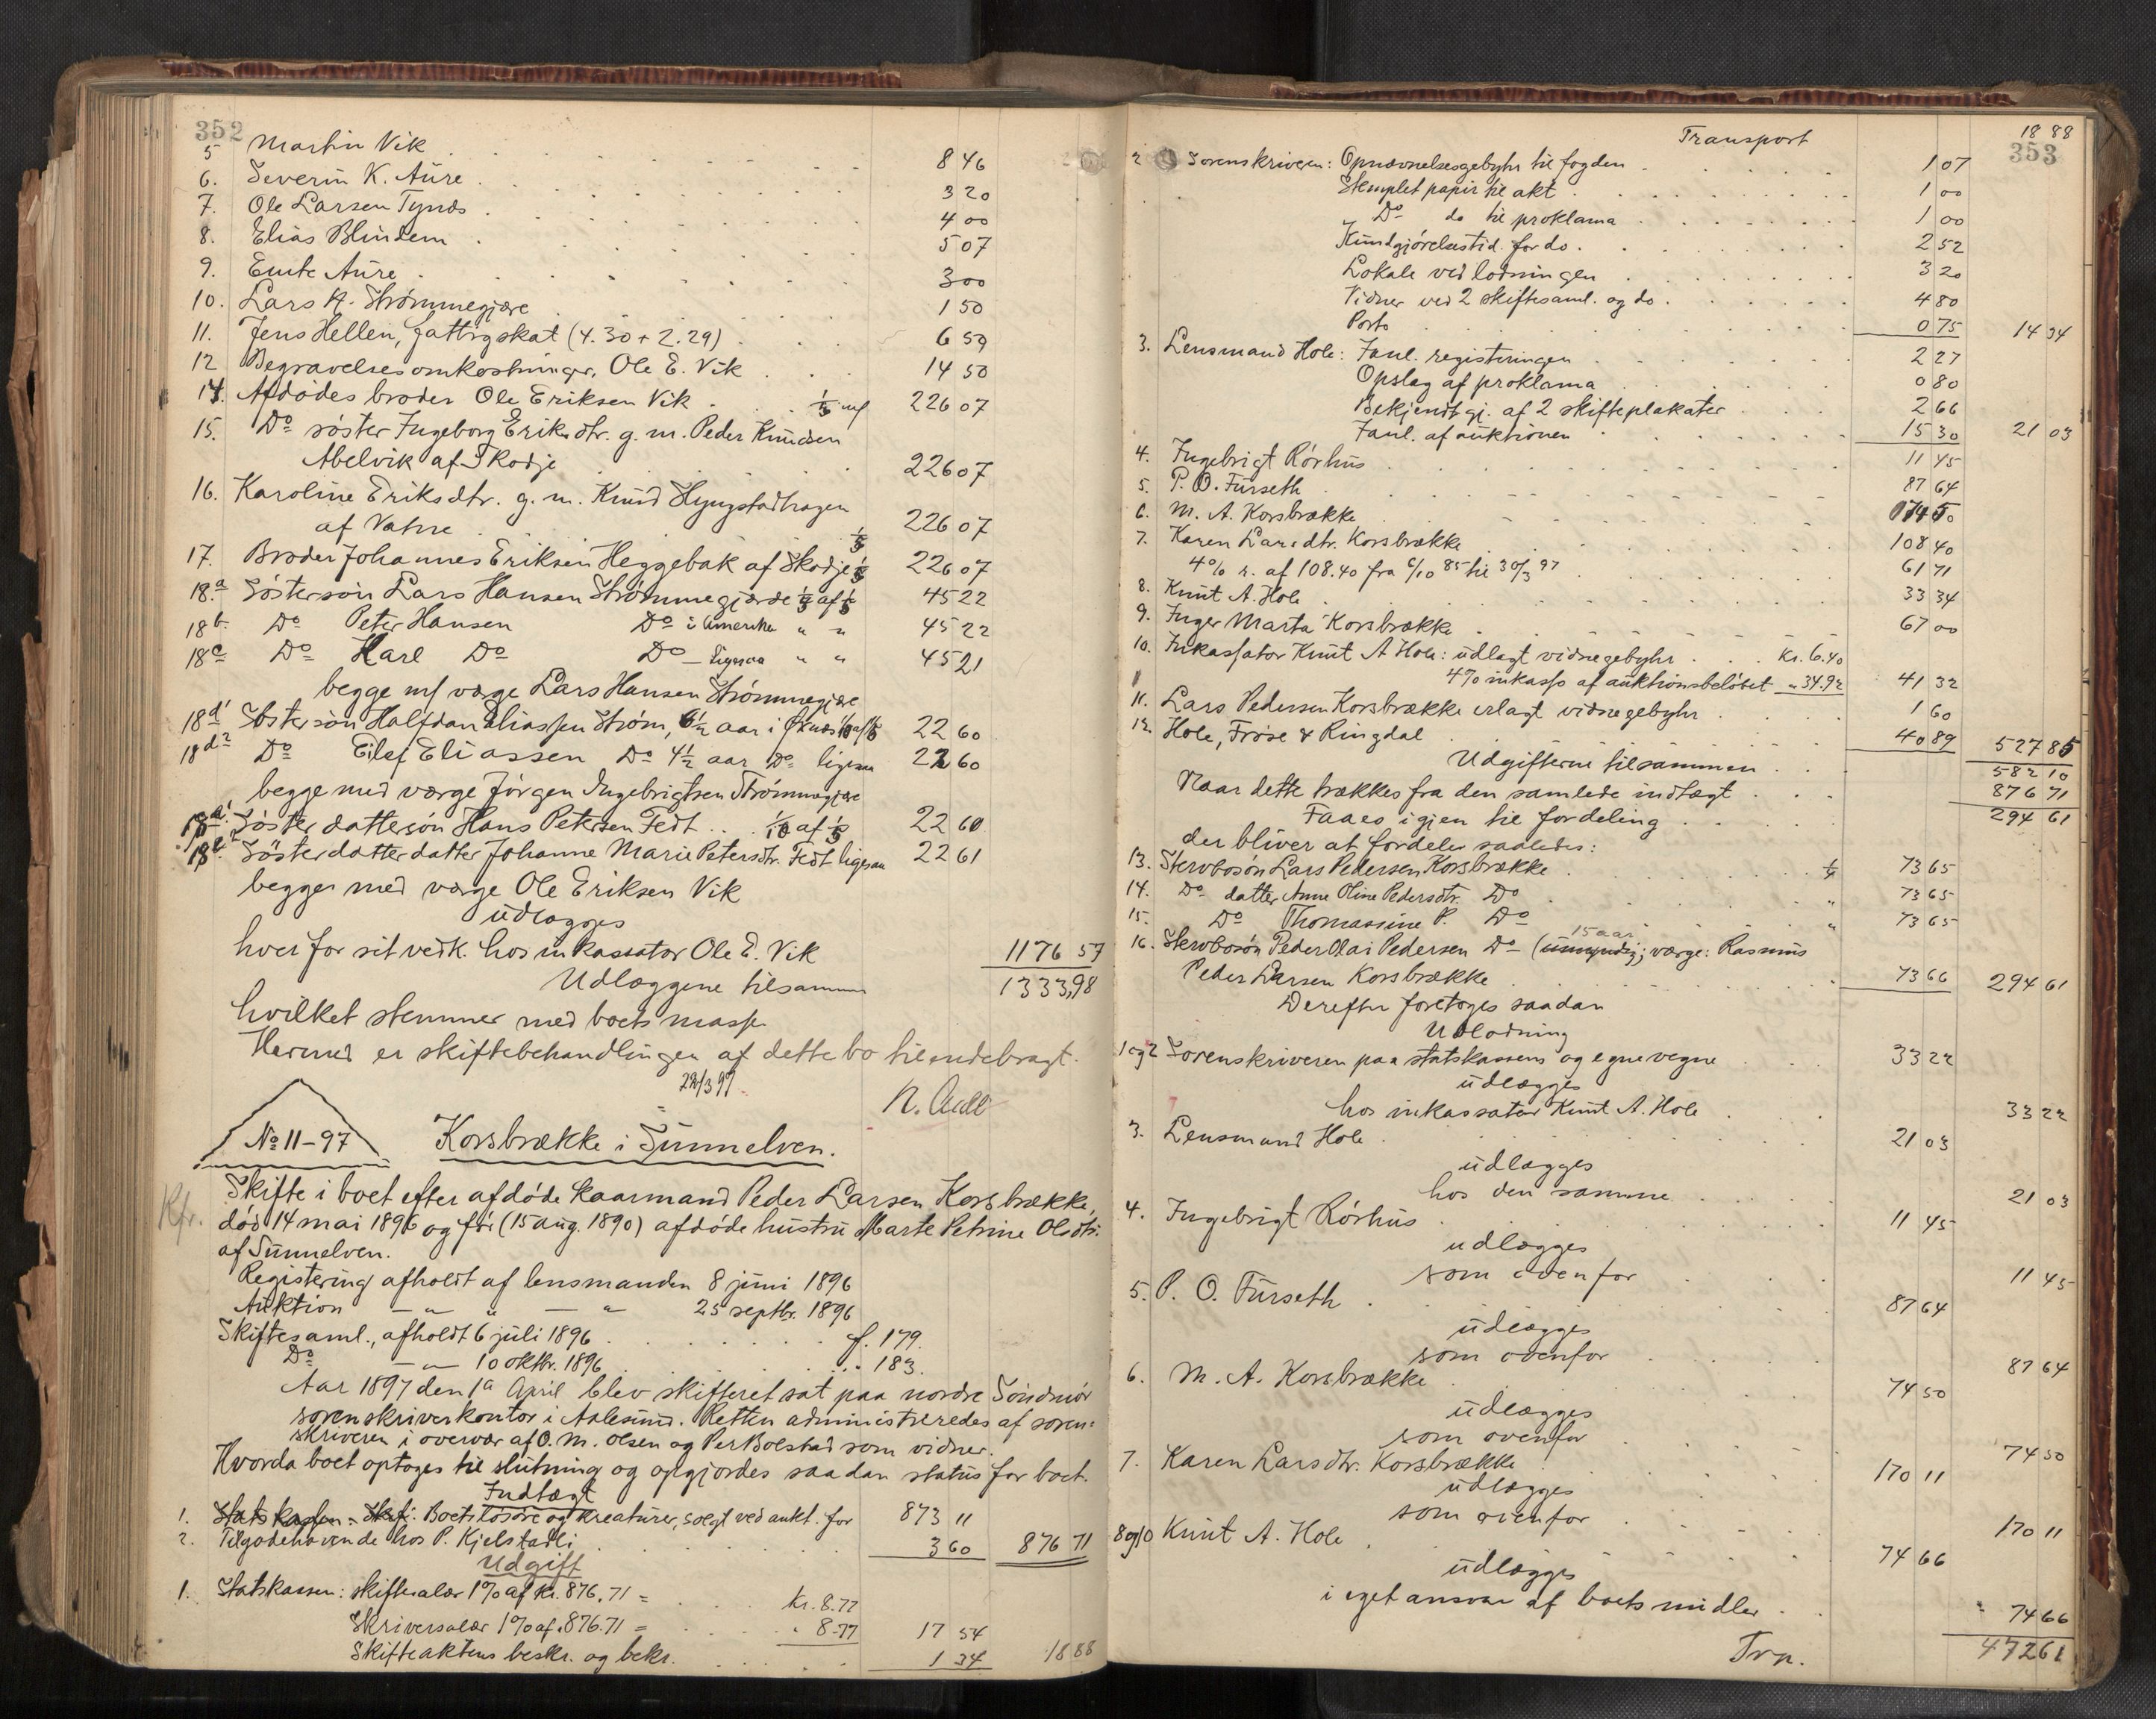 352
5 Martin Vik 8 46
6. Severin K. Aure 3 20
7. Ole Larsen Tynes 4 00
8. Elias Blindem 5 07
9. Ente Aure 3 00
10. Lars K. Strømmegjære 1 50
11. Jens Hellen, fattigskat (4.30 + 2.29) 6 59
12 Begravelsesomkostninger, Ole E. Vik 14 50
14. Afdødes broder Ole Eriksen Vik 1/5 226 07
15. Do søster Ingeborg Eriksdtr. g. m. Peder Knudsen
Abelvik af Skodje 226 07
16. Karoline Eriksdtr. g. m. Knud Hyngstadhagen
af Vatne 226 07
17. Broder Johannes Eriksen Heggebak af Skodje 1/5 226 07
18.a Søstersøn Lars Hansen Strømmegjærde 1/5 af 1/5 45 22
18b. Do Peter Hansen Do i Amerika " " 45 22
18c Do Karl Do Do - ligesaa " " 45 21
begge m/ værge Lars Hansen Strømmegjære
18d1 Søstersøn Halfdan Eliassen Strøm, 6½ aar i 1/10 af 1/5 22 60
18d2 Do Eilef Eliassen Do 4½ aar Do ligesaa 22 60
begge med værge Jørgen Ingebrigtsen Strømmegjære
Søster dattersøn Hans Petersen Fedt .. 1/10 af 1/5 22 60
Søsterdatterdatter Johanne Marie Petersdtr. Fedt ligesaa 22 61
begge med værge Ole Eriksen Vik
udlægges
hver for sit vedk. hos inkassator Ole E. Vik 1176 57
Udlæggene tilsammen 1333,98
hvilket stemmer med boets masse
Hermed er skiftebehandlingen af dette bo tilendebragt.
29/3 97
N. Aall
No 11-97 Korsbrække i Sunnelven.
Kfr. Skifte i boet efter afdøde kaarmand Peder Larsen Korsbrække,
død 14 mai 1896 og før (15 aug. 1890) afdøde hustru Marte Petrine Olsdtr.
af Sunnelven.
Registering afholdt af lensmanden 8 juni 1896
Auktion — " — " — " 25 septbr. 1896
Skiftesaml., afholdt 6 juli 1896 f. 179.
Do — " — 10 oktbr. 1896 183.
Aar 1897 den 1a April blev skifteret sat paa nordre Søndmør
sorenskriverkontor i Aalesund. Retten administreredes af soren=
skriveren i overvær af O. M. Olsen og Per Bolstad som vidner.
Hvorda boet optoges til slutning og opgjordes saadan status for boet.
Indtægt
1. Statskassen: Boets løsøre og kreaturer, solgt ved aukt. for 873 11
2. Tilgodehavende hos P. Kjelstadli 3 60 876 71
Udgift
1. Statskassen: skiftesalær 1% af kr. 876.71 = kr. 8.77
Skriversalær 1% af " 876.71 = " 8.77 17 54
Skifteaktens beskr. og bekr. 1 34 18 88
Transport 18 88
353
2 Sorenskriveren: Opnævnelsesgebyhr til fogden 1 07
Stemplet papir til akt 1 00
Do do til proklama 1 00
Kundgjørelsestid. for do. 2 52
Lokale ved lodningen 3 20
Vidner ved 2 skiftesaml. og do. 4 80
Porto 0 75 14 34
3. Lensmand Hole: Fanl. registeringen 2 27
Opslag af proklama 0 80
Bekjendtgj. af 2 skifteplakater 2 66
Fanl. af auktionen 15 30 21 03
4. Ingebrigt Rørhus 11 45
5. P. O. Furseth 87 64
6. M. A. Korsbrække 74 50
7. Karen Larsdtr. Korsbrække 108 40
4% r. af 108.40 fra 6/10 85 til 30/3 97 61 71
8. Knut A. Hole 33 34
9. Inger Marta Korsbrække 67 00
10. Inkassator Knut A Hole: udlagt vidnegebyhr kr. 6.40
4% inkasso af auktionsbeløbet " 34.92 41 32
11. Lars Pedersen Korsbrække erlagt vidnegebyhr 1 60
12 Hole, Frøse & Ringdal 40 89 527 85
Udgifterne tilsammen 582 10
Naar dette trækkes fra den samlede indtægt 876 71
Faaes igjen til fordeling 294 61
der bliver at fordele saaledes:
13. Stervbosøn Lars Pedersen Korsbrække ¼ 73 65
14. Do datter Anne Oline Pedersdtr. Do " 73 65
15. Do Thomassine P. Do " 73 65
16. Stervbosøn Peder Olai Pedersen Do (umyndig 15 aar; værge: Rasmus
Peder Larsen Korsbrække " 73 66 294 61
Derefter foretoges saadan
Udlodning
1 og 2 Sorenskriveren paa statskassens og egne vegne 33 22
udlægges
hos inkassator Knut A. Hole 33 22
3. Lensmand Hole 21 03
udlægges
hos den samme 21 03
4. Ingebrigt Rørhus 11 45
udlægges
som ovenfor 11 45
5. P. O. Furseth 87 64
udlægges
som ovenfor 87 64
6. M. A. Korsbrække 74 50
udlægges
som ovenfor 74 50
7. Karen Larsdtr. Korsbrække 170 11
udlægges
som ovenfor 170 11
8 og 10 Knut A. Hole 74 66
udlægges
i eget ansvar af boets midler 74 66
Trp. 472 61